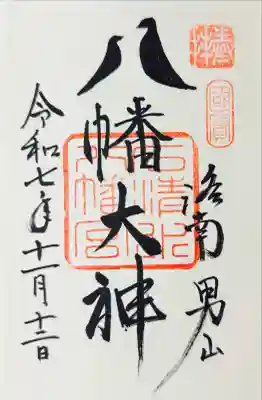 奉拝
國寶
洛南 男山
八幡大神
石清水八幡宮
令和七年十一月十三日